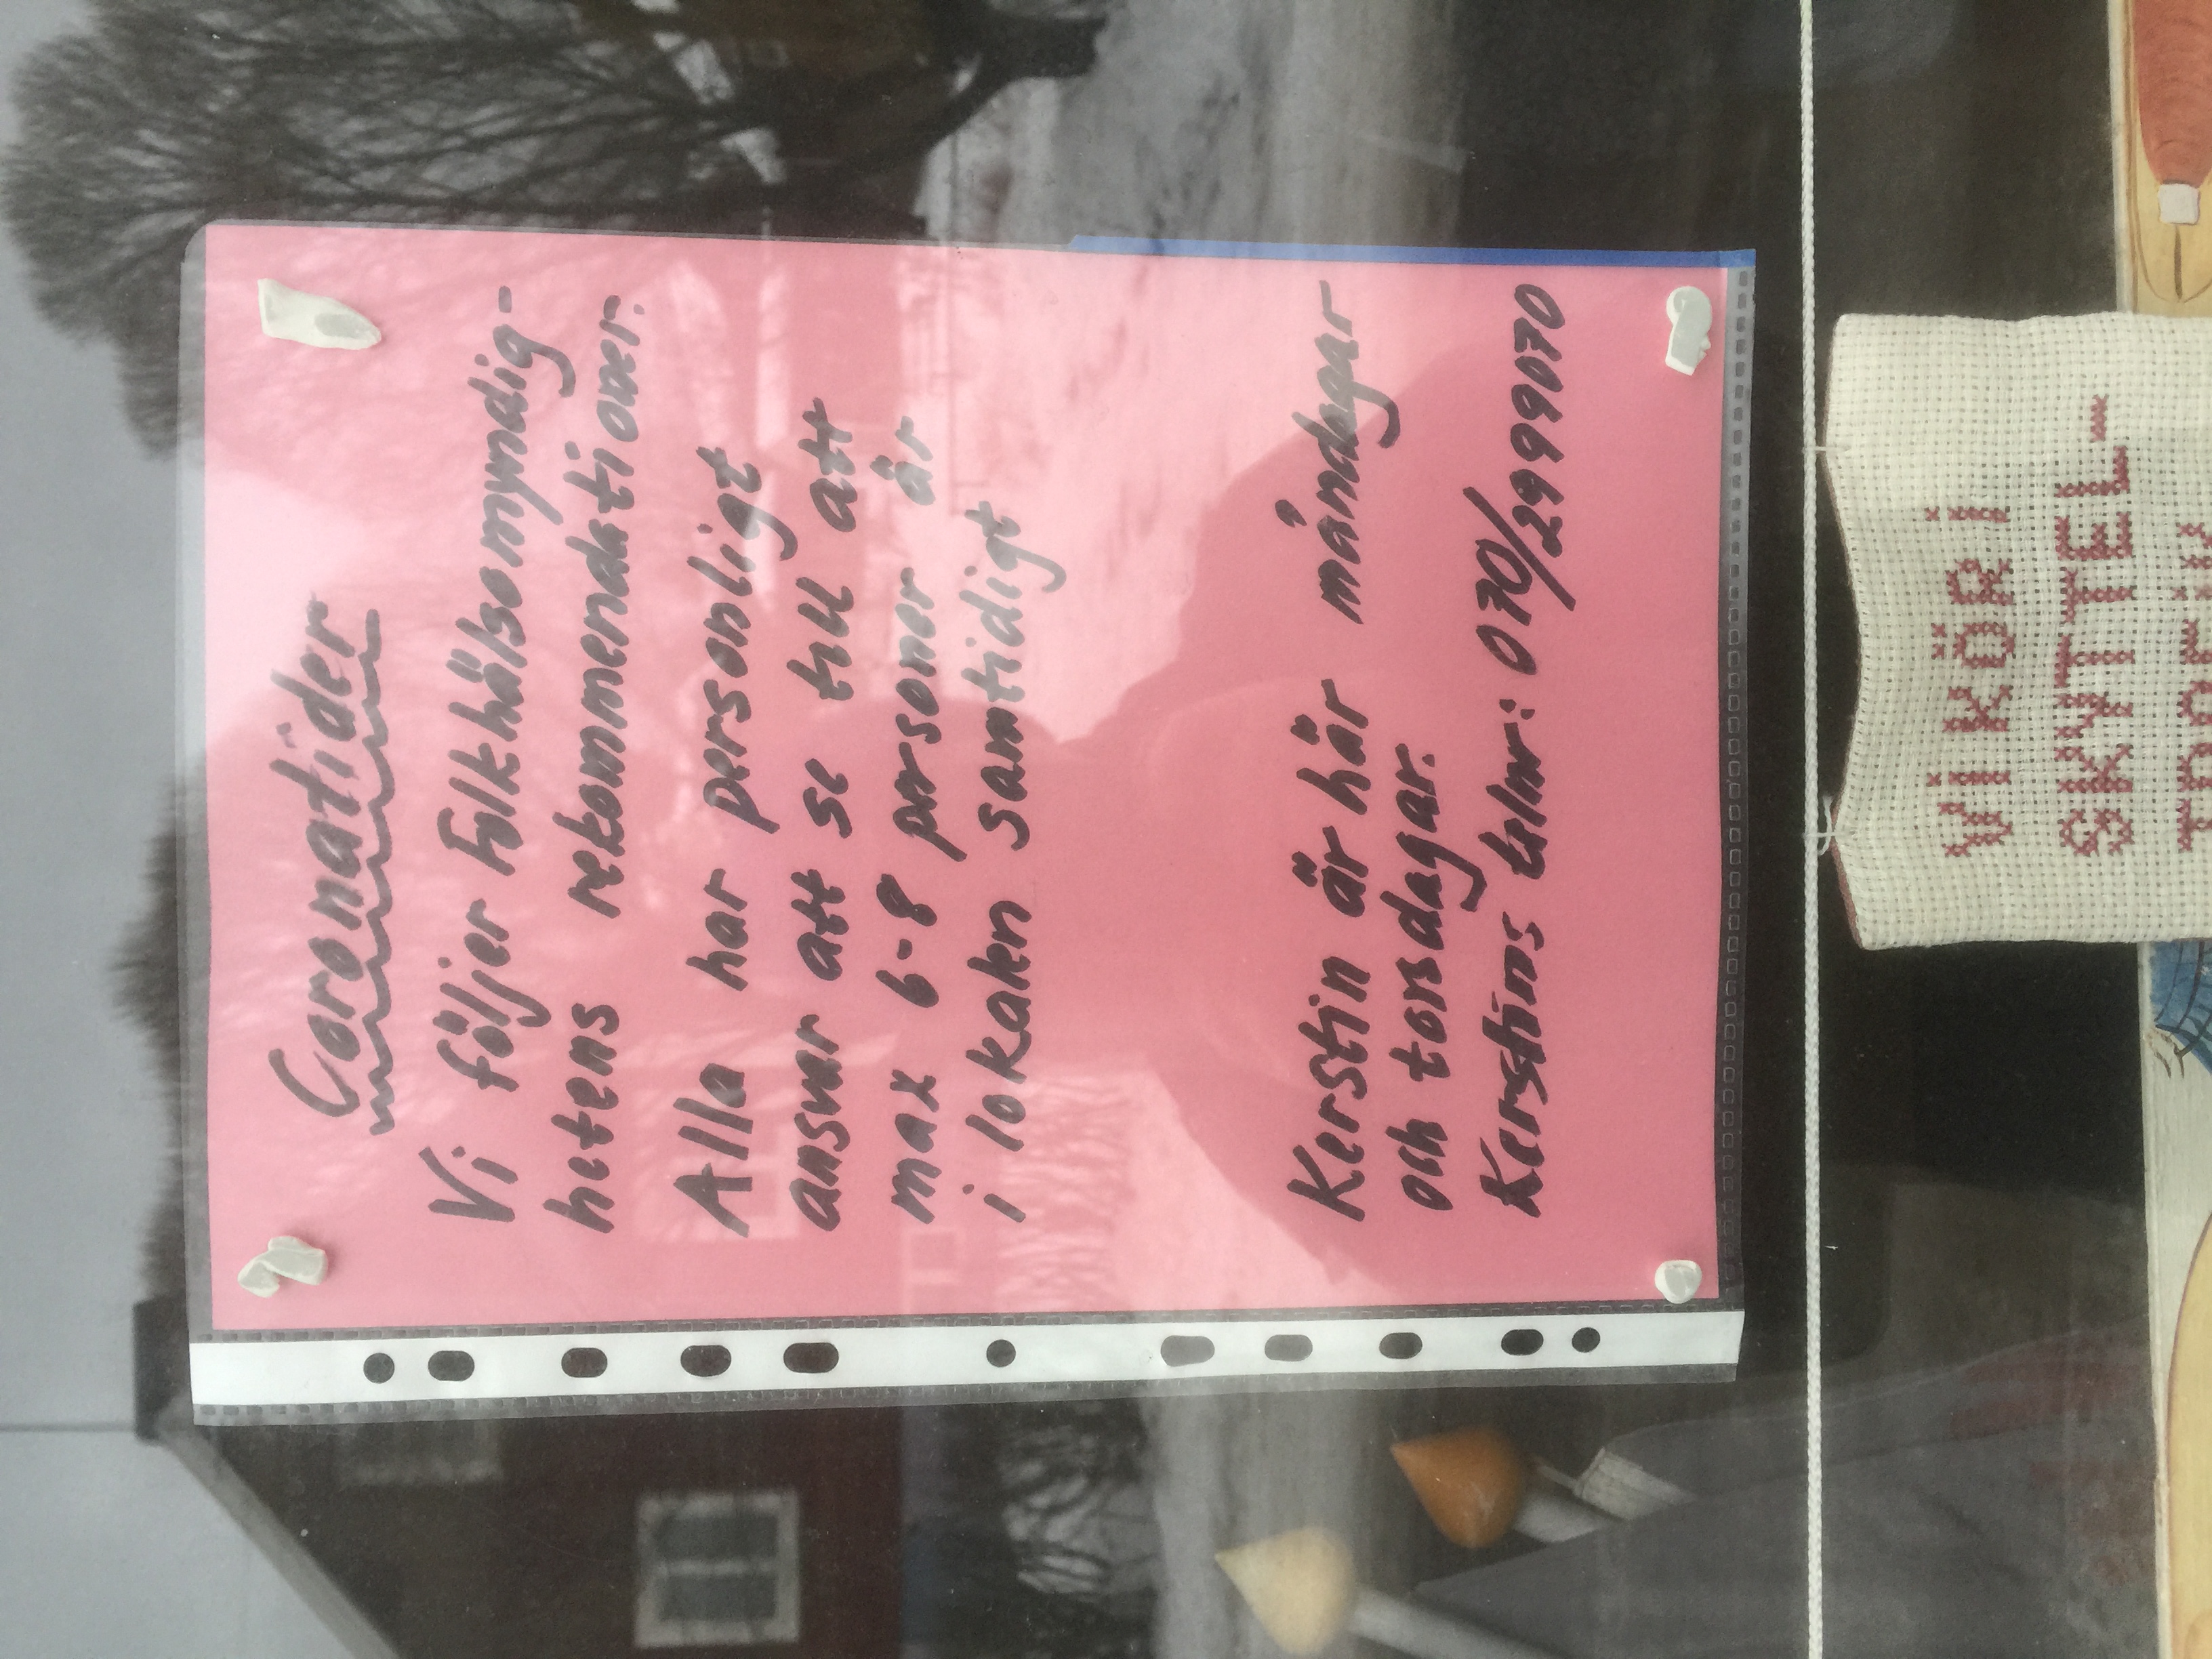 Coronatider
Vi följer Folkhälsomyndig-
hetens rekommendationer.
Alla har personligt
ansvar att se till att
max 6-8 personer är
i lokalen samtidigt
Kerstin är här måndagar
och torsdagar.
Kerstins telnr: 070/2999070
VI KÖR I
SKYTTEL-